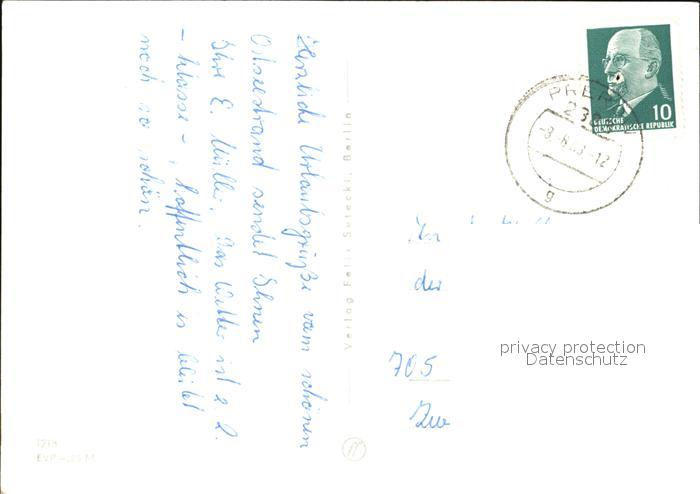 Herzliche Urlaubsgrüße vom schönen
Ostseestrand sendet Ihnen
Ihre E. Müller. Das Wetter ist z. Z.
- klasse -, hoffentlich is bleibt
noch so schön.
Verlag Felix Setecki, Berlin
DEUTSCHE
DEMOKRATISCHE REPUBLIK
10
PRER
23
-8.-6.63.-12
g
der
705
privacy protection
Datenschutz
1218